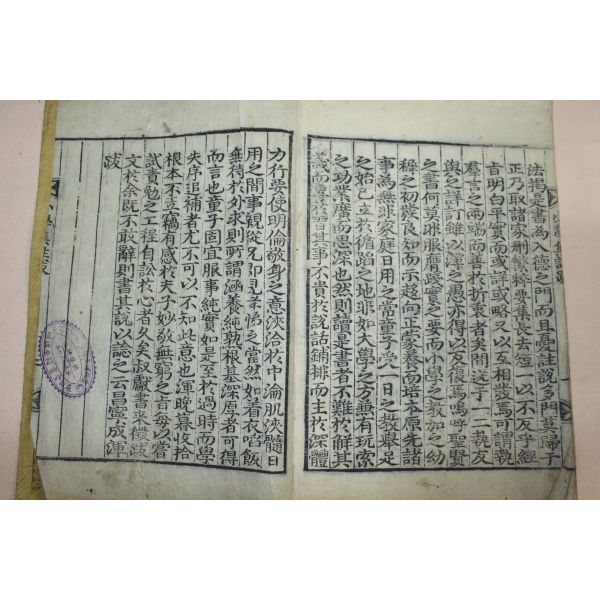 小學集註跋
法揭是書爲入德之門而且憂註說多門莫歸于
正乃取諸家刪繁粹要集長去短一以不反乎經
旨明白平實而或詳或略又以互相發焉可謂執
羣言之兩端而善於折衷者矣間送于一二執友
與之評訂雖以渾之愚亦得以反復焉嗚呼聖賢
之書何莫非服膺踐實之要而小學之教加之幼
穉之初發良知而示趨向正蒙養而培本原先諸
事爲無非家庭日用之常童子學八日之教擧足
之始已立於循蹈之地非如大學之方兼有玩索
之功業廣而思深也然則讀是書者不難於解其
義而貴於習其事不貴於說話鋪排而主於深體
力行要使明倫敬身之意浹洽於中淪肌浹髓日
用之間事親從兄即見孝悌之當然如着衣喫飯
無待於外求則所謂涵養純熟根基深厚者可得
而言也童子固宜服事純實如是至於過時而學
失序追補者尤不可以不知此意也渾晚暮收拾
根本不立竊有感於夫子妙敬無窮之旨每以嘗
試責勉之工程自訟於心者久矣叔獻書來徵跋
文於余既不敢辭則書其說以諗之云昌寧成渾
跋
小學集註跋